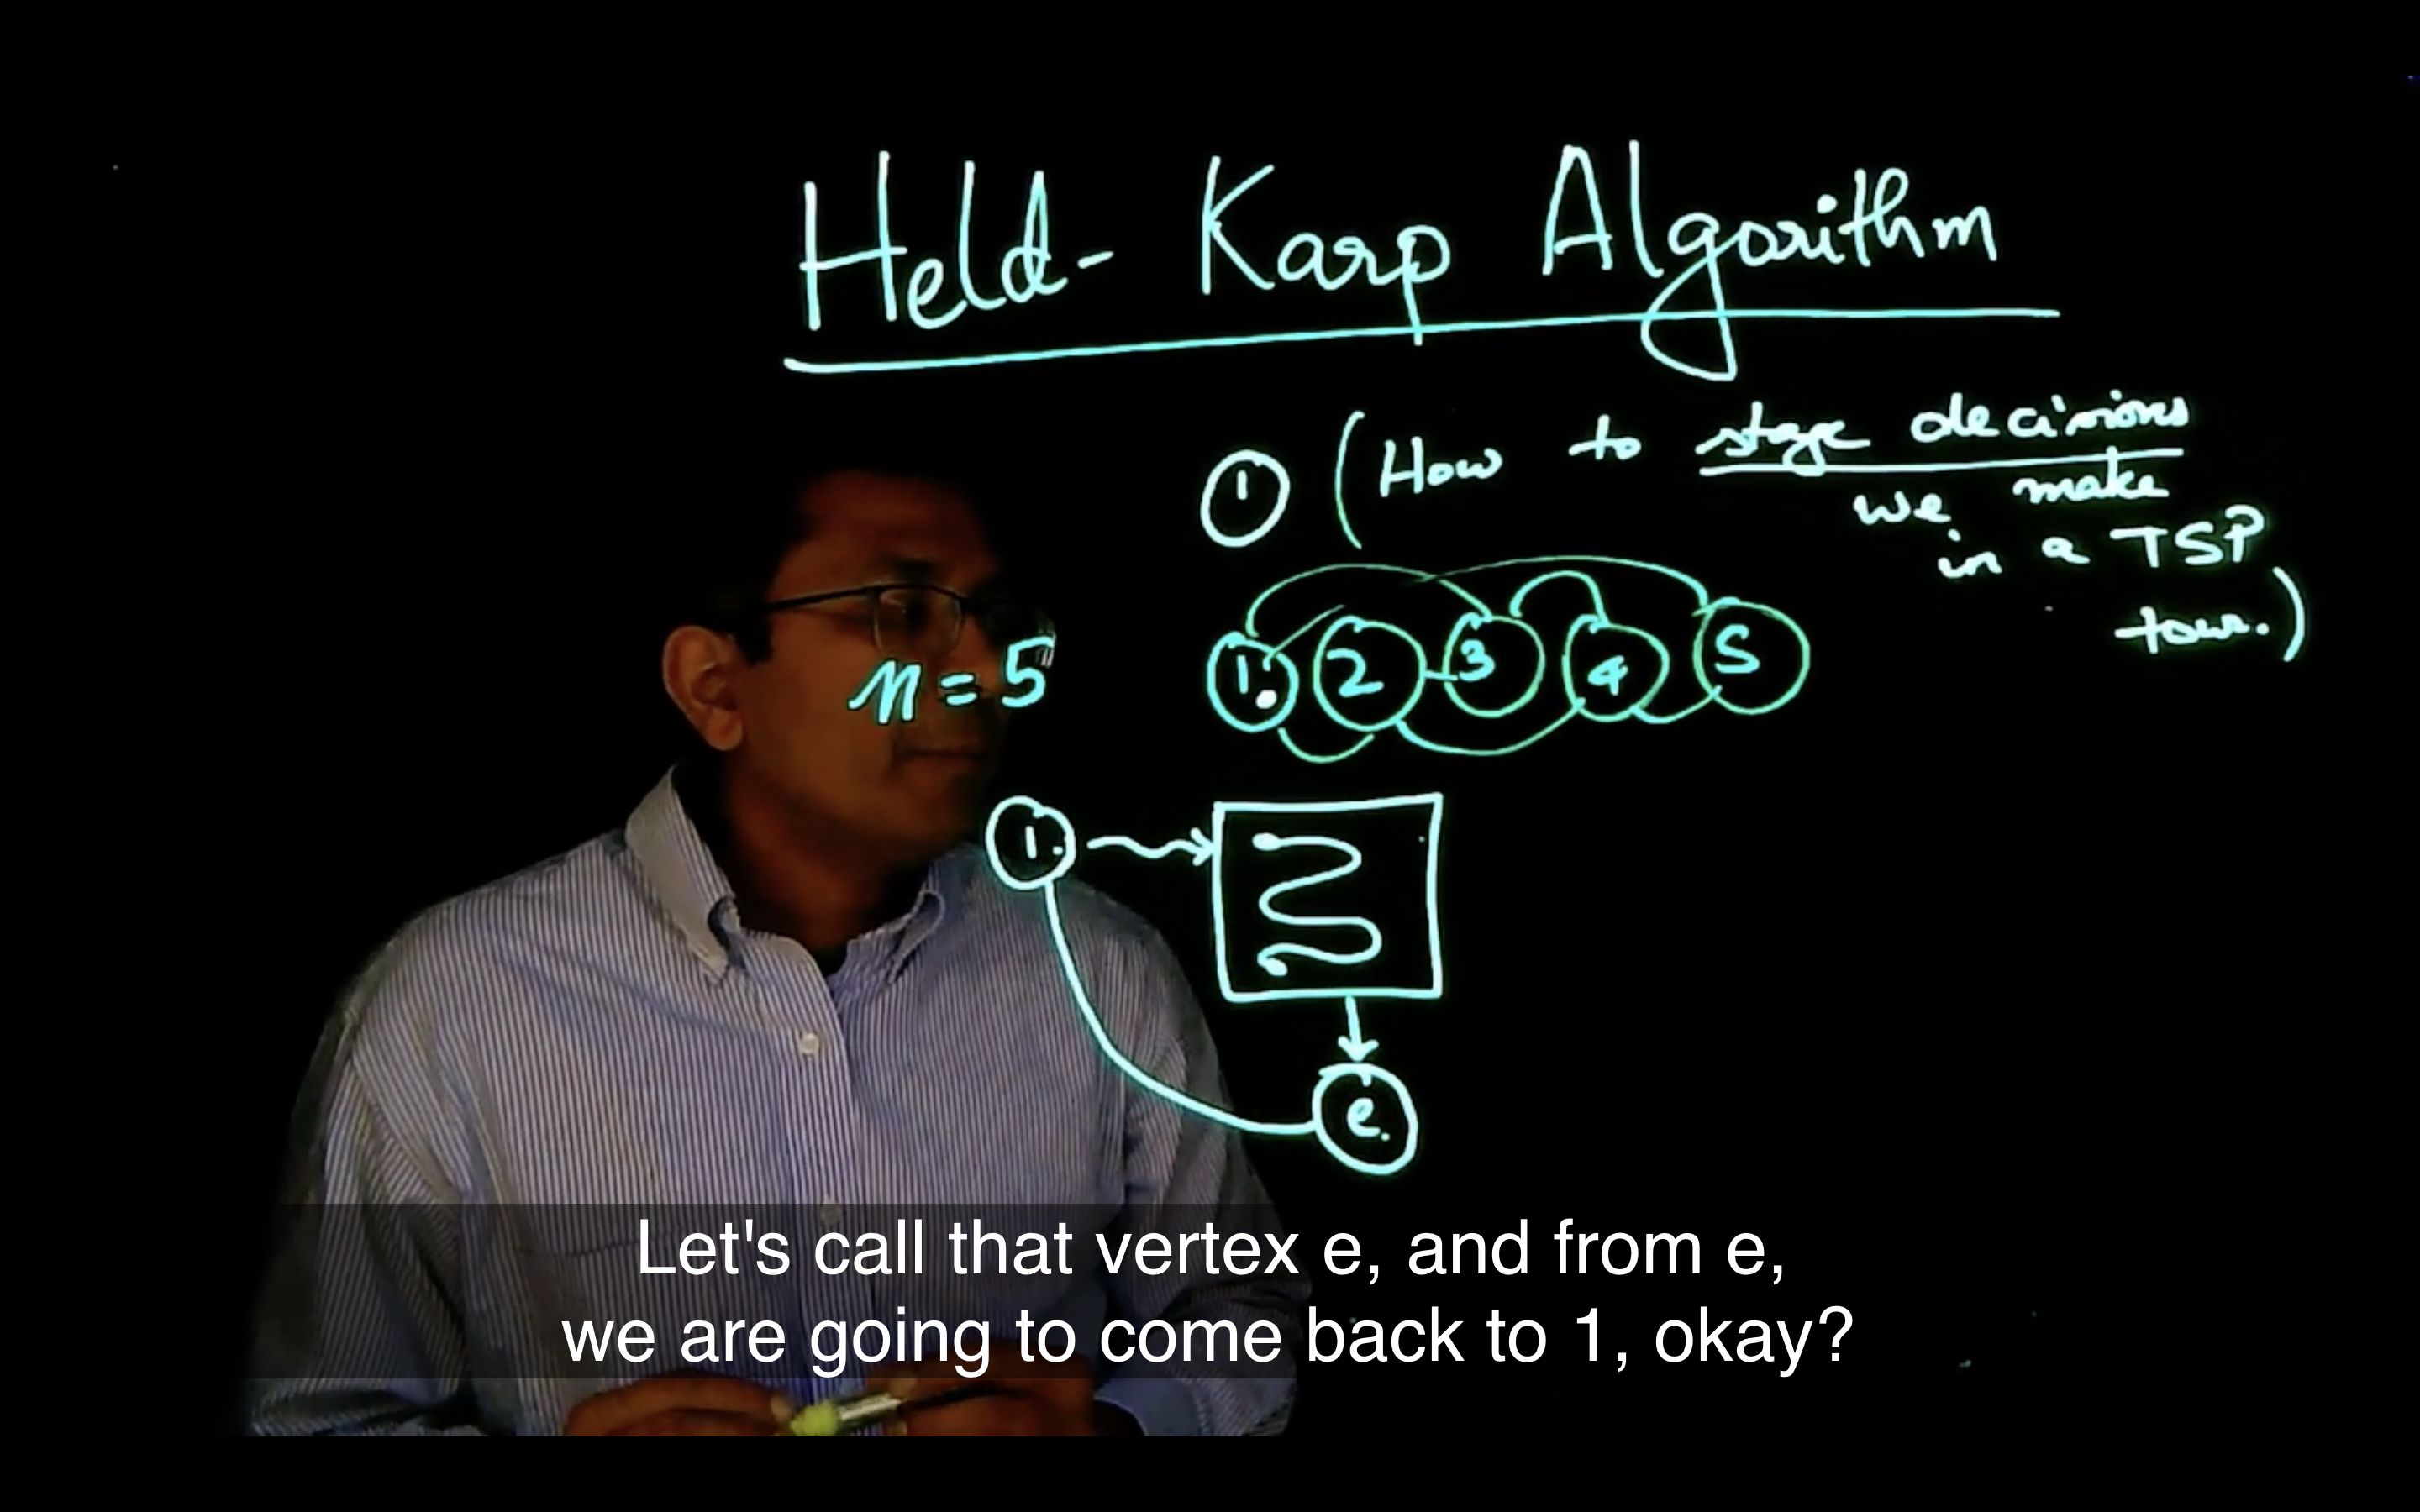 Held- Karp Algorithm
1 (How to stage decisions
we make
in a TSP
tour.)
n = 5
1 2 3 4 5
1
e
Let's call that vertex e, and from e,
we are going to come back to 1, okay?